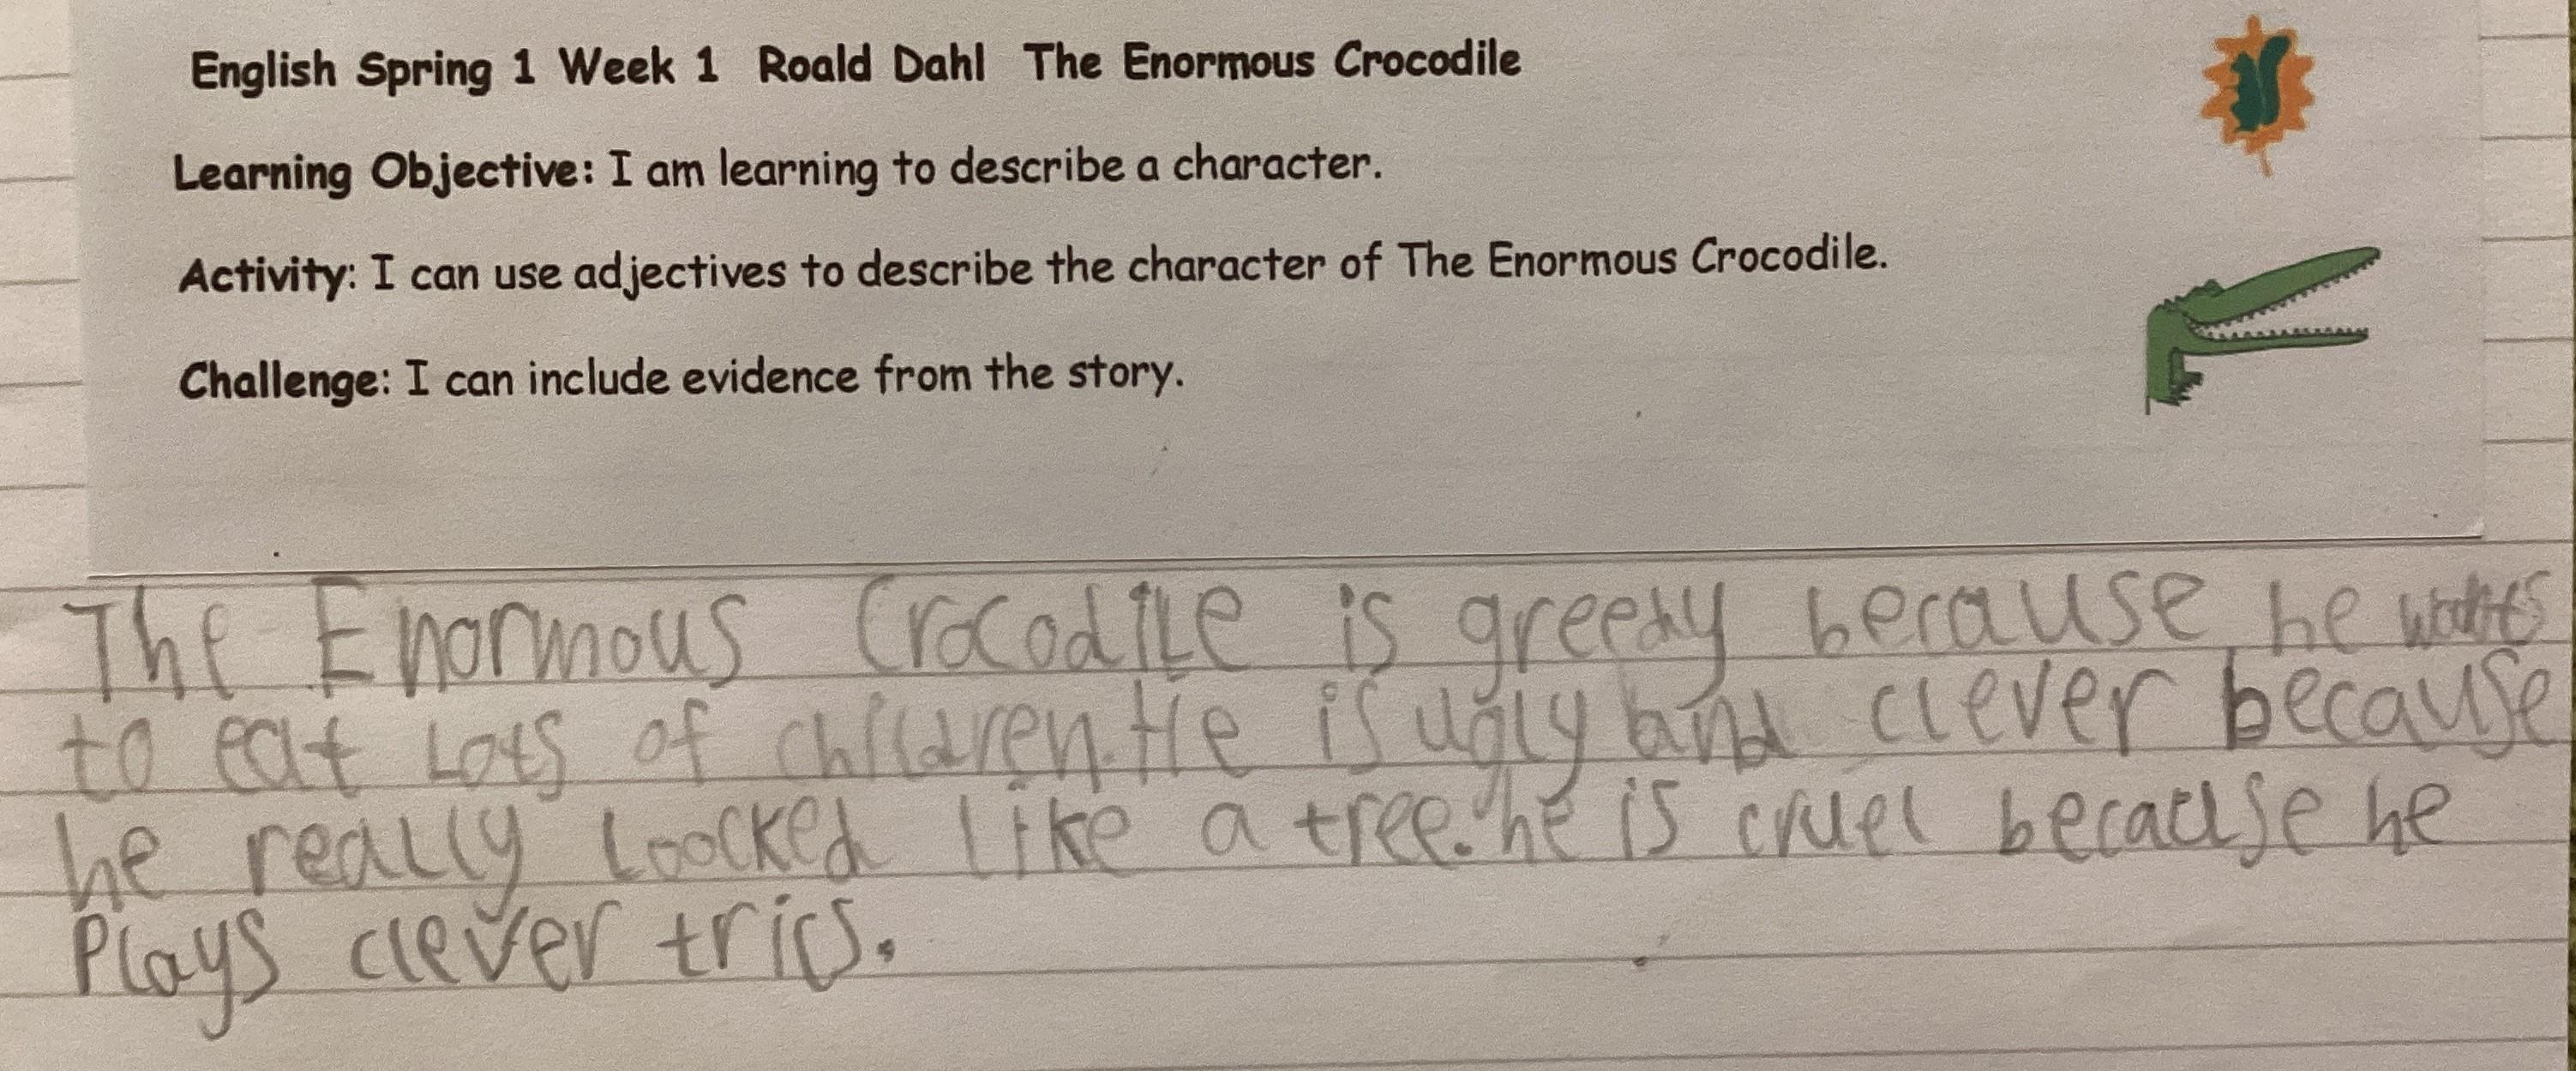 English Spring 1 Week 1 Roald Dahl The Enormous Crocodile
Learning Objective: I am learning to describe a character.
Activity: I can use adjectives to describe the character of The Enormous Crocodile.
Challenge: I can include evidence from the story.
The Enormous Crocodile is greedy because he wants
to eat Lots of children. He is ugly and clever because
he really Loocked like a tree. he is cruel because he
Plays clever trics.